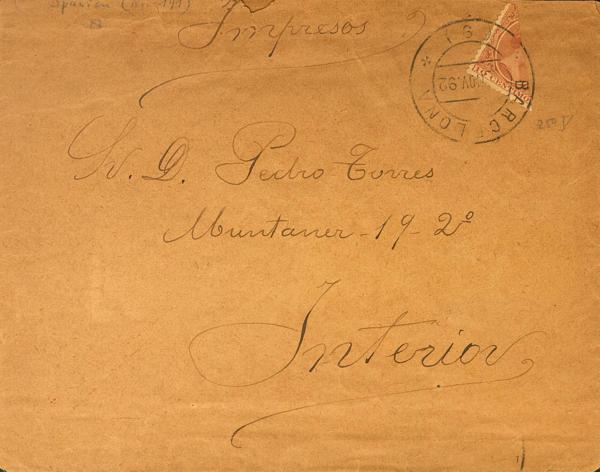 Spanien
Impresos
BARCELONA
NOV.92
Sr. D. Pedro Torres
Muntaner - 19 - 2º
Interior